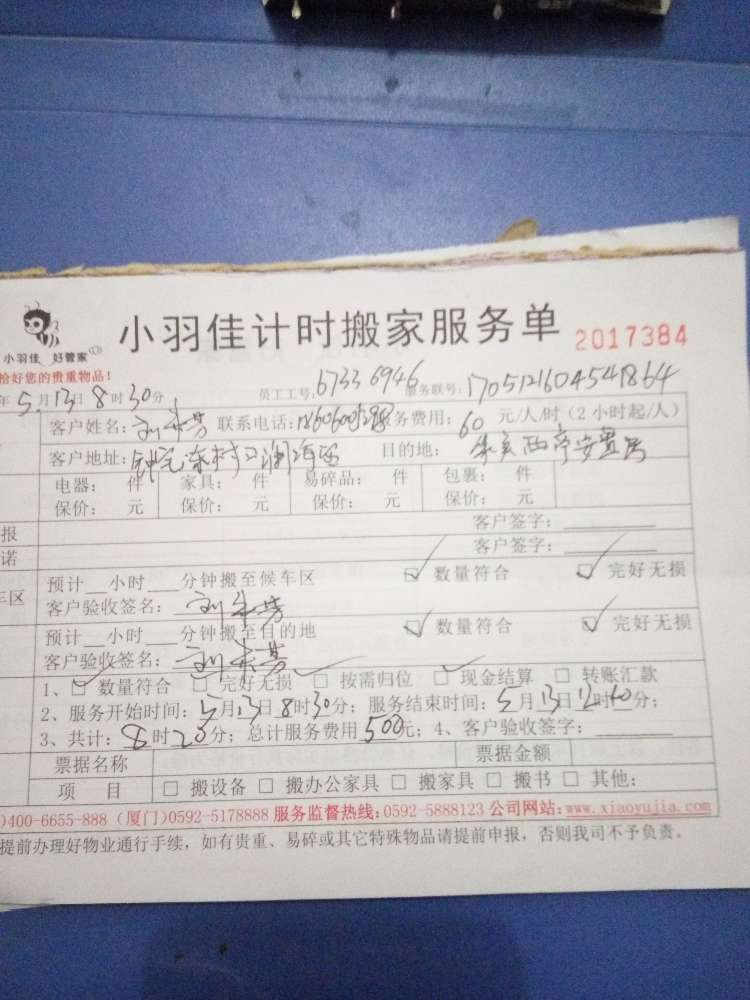 小羽佳计时搬家服务单 2017384
小羽佳 好管家
恰好您的贵重物品!
年5月13日8时30分 员工工号:6733 6946 服务联号:1705121604541864
客户姓名: 联系电话: 服务费用:60元/人/时(2小时起/人)
客户地址: 目的地:
电器: 件 家具: 件 易碎品: 件 包裹: 件
保价: 元 保价: 元 保价: 元 保价: 元
报 客户签字:
诺 客户签字:
预计__小时___分钟搬至候车区 ☑ 数量符合 ☑ 完好无损
车区 客户验收签名:
预计__小时___分钟搬至目的地 ☑ 数量符合 ☑ 完好无损
客户验收签名:
1、☑ 数量符合 ☑ 完好无损 ☑ 按需归位 ☑ 现金结算 □ 转账汇款
2、服务开始时间:5月13日8时30分;服务结束时间:5月13日12时分;
3、共计:8时20分;总计服务费用500元;4、客户验收签字:
票据名称 票据金额
项 目 □ 搬设备 □ 搬办公家具 □ 搬家具 □ 搬书 □ 其他:
)400-6655-888 (厦门)0592-5178888 服务监督热线:0592-5888123 公司网站:www.xiaoyujia.com
提前办理好物业通行手续,如有贵重、易碎或其它特殊物品请提前申报,否则我司不予负责。